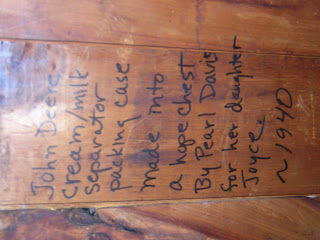 John Deere
cream/milk
separator
packing case
made into
a hope chest
By Pearl Davis
for her daughter
Joyce.
~1940